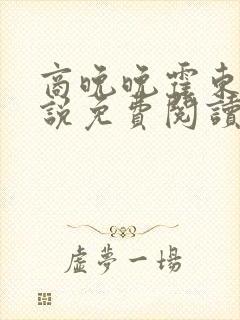 商晚晚霍東
説免費閱讀
虛夢一場